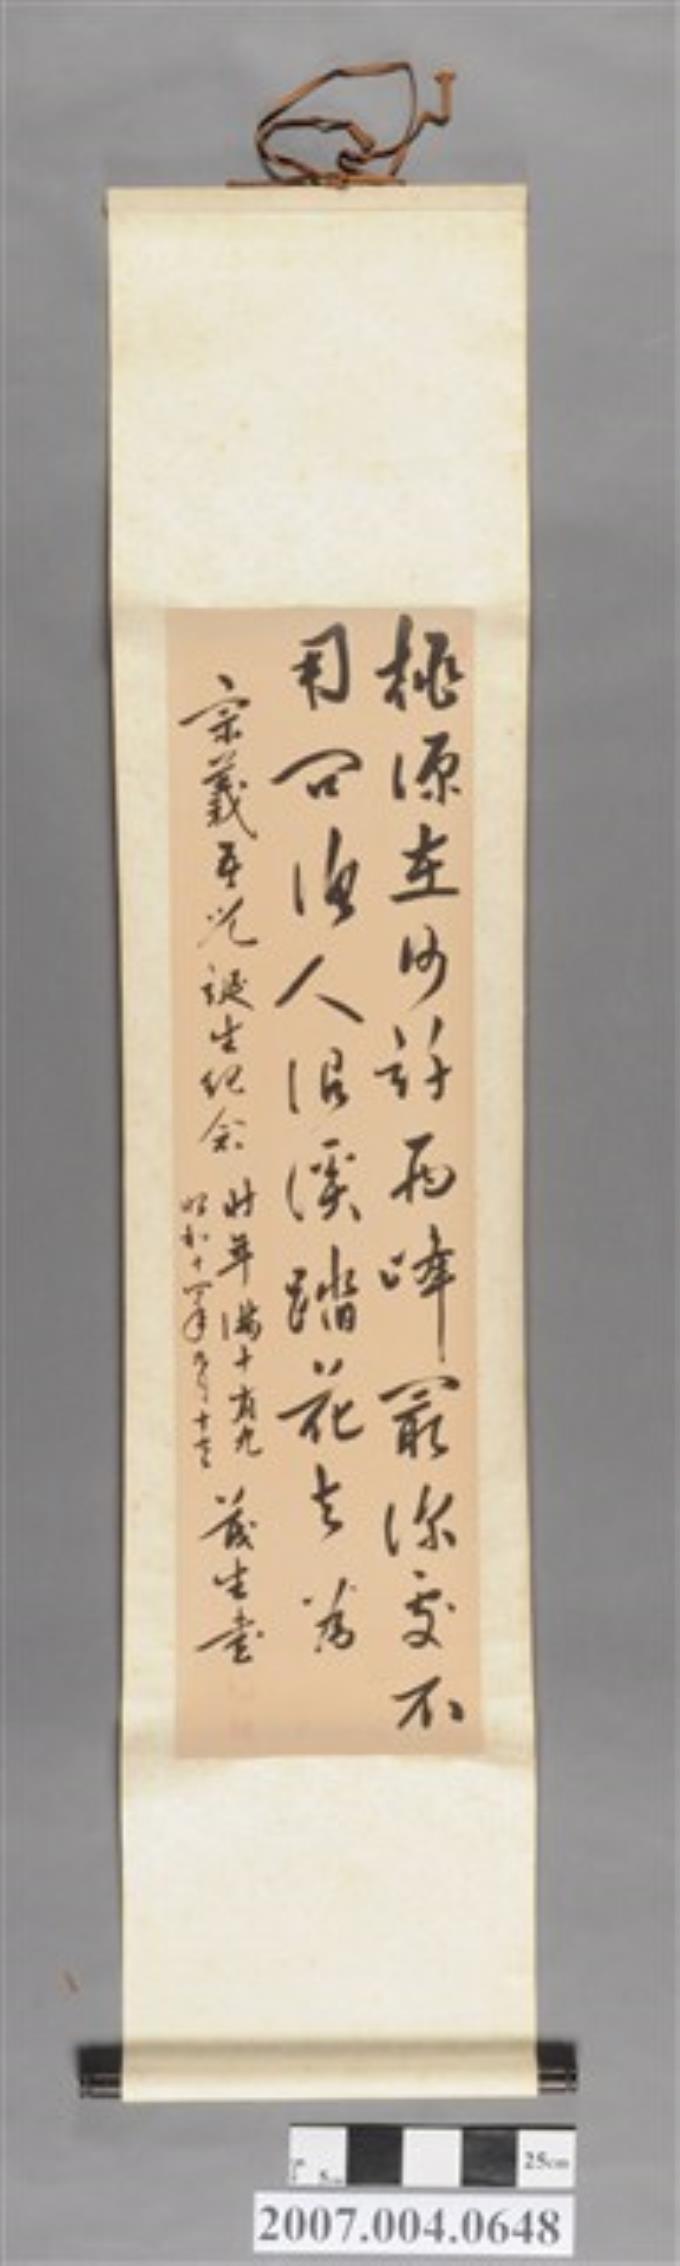 桃源在何許西峰最深處不
用問漁人沿溪踏花去 為
宗義吾兒誕生紀念 時年滿十有九
昭和十四年九月十
茂生書
5cm 25cm
2007.004.0648